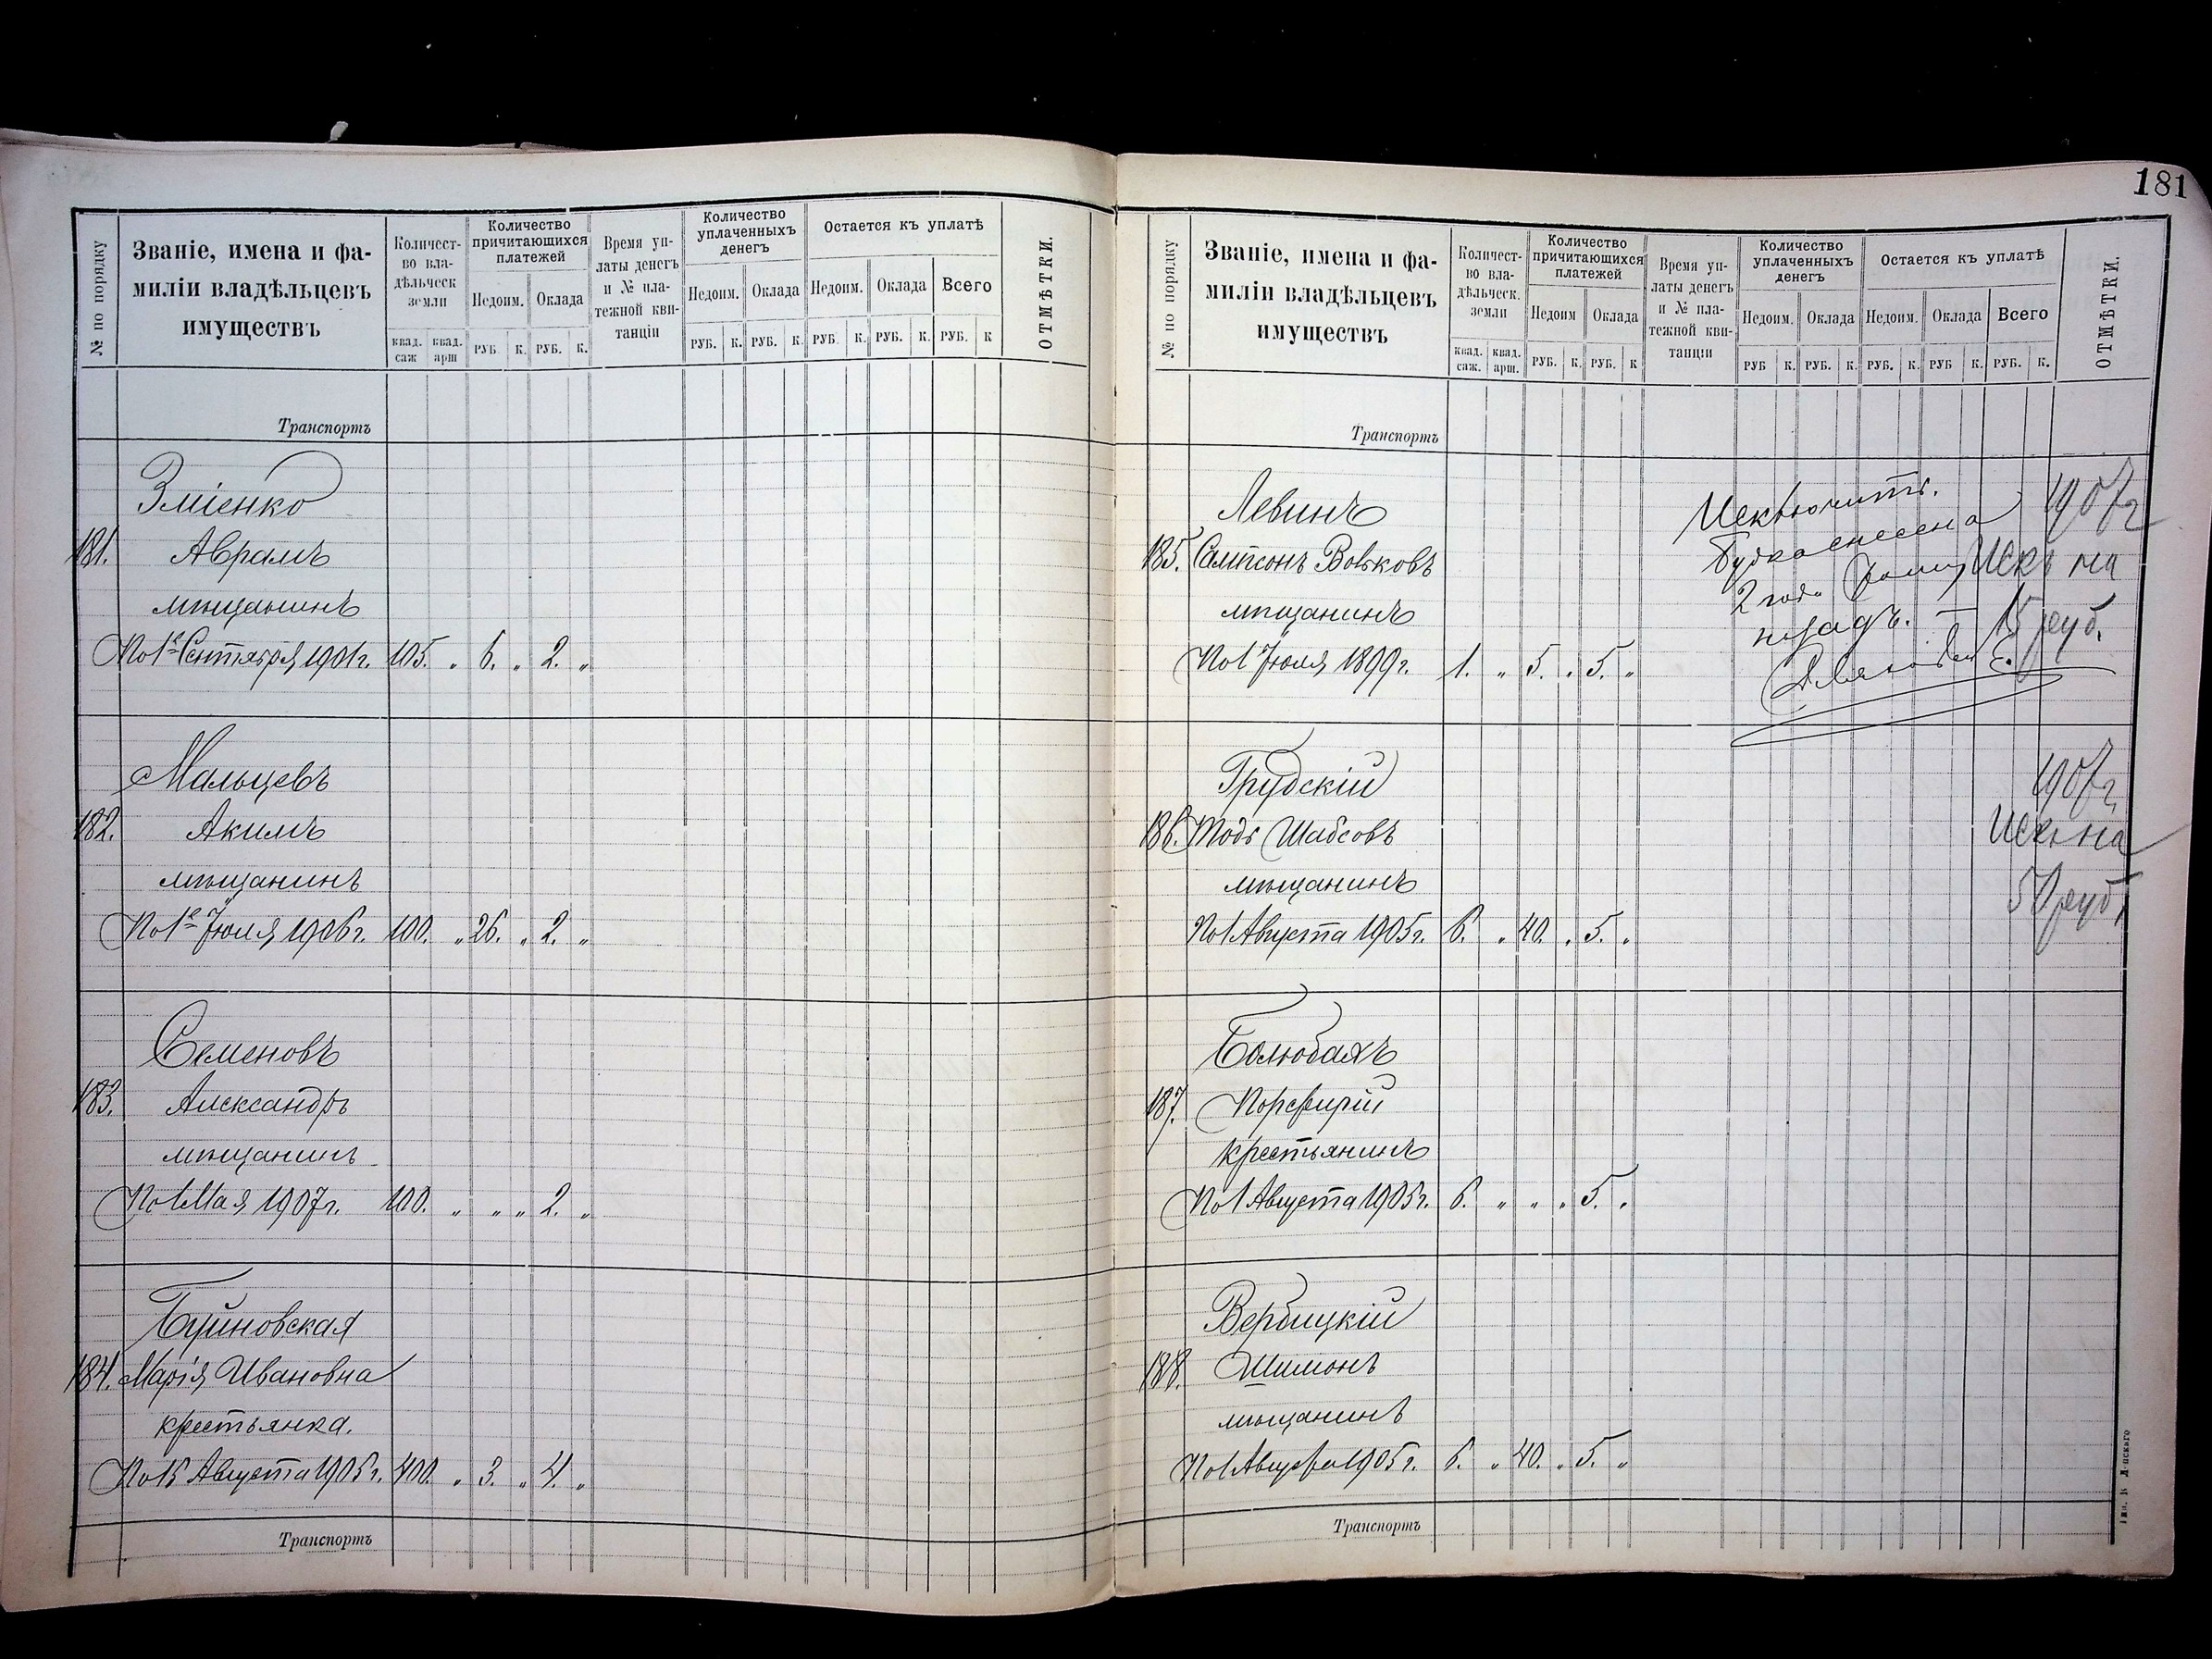 181
№ по порядку
Званіе, имена и фа-
миліи владѣльцевъ
имуществъ
Количест-
во вла-
дѣльческ
земли
квад. саж
квад. арш
Количество
причитающихся
платежей
Недоим.
Оклада
РУБ
К.
РУБ.
К.
Время уп-
латы денегъ
и № пла-
тежной кви-
танціи
Количество
уплаченныхъ
денегъ
Недоим.
Оклада
РУБ.
К.
РУБ.
К.
Остается къ уплатѣ
Недоим.
Оклада
Всего
РУБ.
К.
РУБ.
К.
РУБ.
К
ОТМѢТКИ.
Транспортъ
Зміенко
181. Аврамъ
мѣщанинъ
По 1е Сентября 1901 г. 105. „ 6. „ 2. „
Мальцевъ
182. Акимъ
мѣщанинъ
По 1е Іюля 1906 г. 100. „ 26. „ 2. „
Семеновъ
183. Александръ
мѣщанинъ
По 1 Мая 1907 г. 100. „ „ „ 2. „
Буйновская
184. Марія Ивановна
крестьянка.
По 15 Августа 1905 г. 400. „ 3. „ 4. „
Транспортъ
№ по порядку
Званіе, имена и фа-
миліи владѣльцевъ
имуществъ
Количест-
во вла-
дѣльческ.
земли
квад. саж.
квад. арш.
Количество
причитающихся
платежей
Недоим
Оклада
РУБ.
К.
РУБ.
К
Время уп-
латы денегъ
и № пла-
тежной кви-
танціи
Количество
уплаченныхъ
денегъ
Недоим.
Оклада
РУБ
К.
РУБ.
К.
Остается къ уплатѣ
Недоим.
Оклада
Всего
РУБ.
К.
РУБ
К.
РУБ.
К.
ОТМѢТКИ.
Транспортъ
Левинъ
185. Сампсонъ Вовковъ
мѣщанинъ
По 1 Іюля 1899 г. 1. „ 5. „ 5. „
Исключить.
будка снесена
2 года тому
назадъ.
1907 г
Искл на
15 руб.
Грудскій
186. Тодъ Шабсовъ
мѣщанинъ
По 1 Августа 1905 г. 6. „ 40. „ 5. „
1907 г,
Искл на
50 руб,
Болюбахъ
187. Порфирій
крестьянинъ
По 1 Августа 1905 г. 6. „ „ „ 5. „
Вербицкій
188. Шимонъ
мѣщанинъ
По 1 Августа 1905 г. 6. „ 40. „ 5. „
Транспортъ